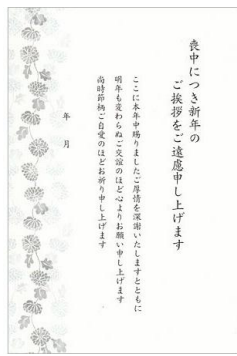 喪中につき新年の
ご挨拶をご遠慮申し上げます
ここに本年中賜りましたご厚情を深謝いたしますとともに
明年も変わらぬご交誼のほど心よりお願い申し上げます
尚時節柄ご自愛のほどお祈り申し上げます
年 月